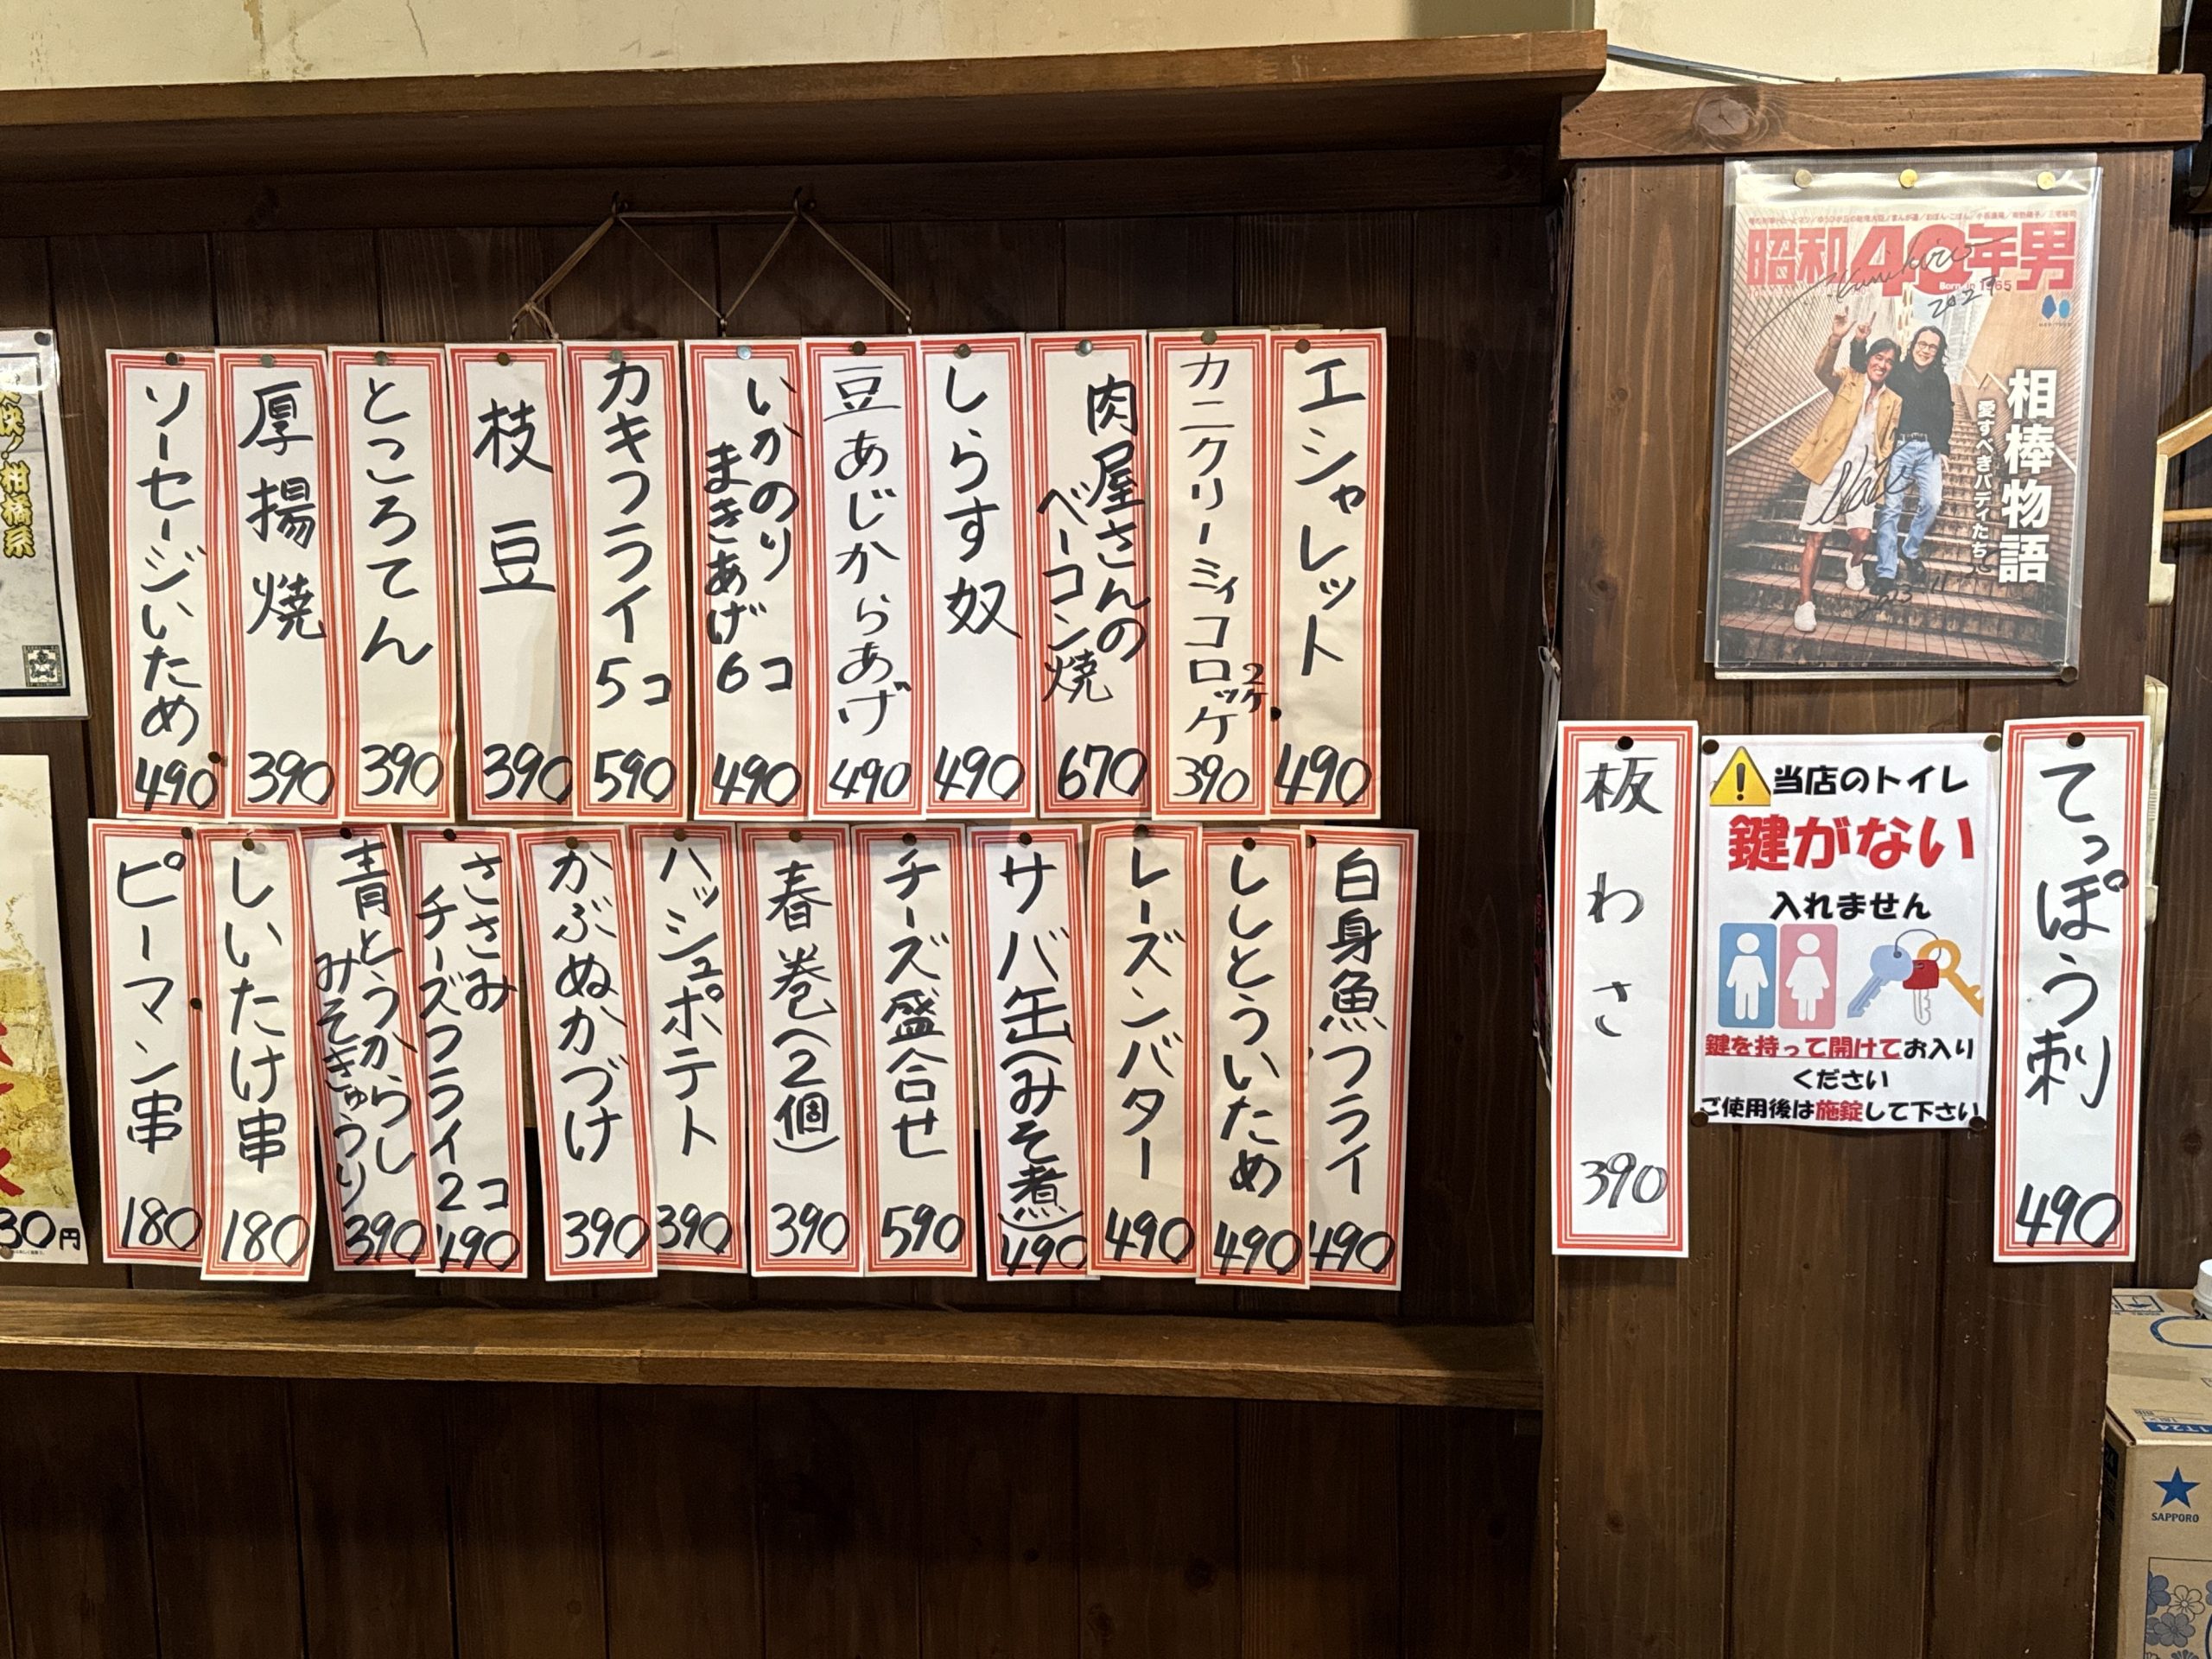 エシャレット
490
カニクリーミィコロッケ
2ケ
390
肉屋さんの
ベーコン焼
670
しらす奴
490
豆あじからあげ
490
いかのり
まきあげ
6コ
490
カキフライ
5コ
590
枝豆
390
ところてん
390
厚揚焼
390
ソーセージいため
490
白身魚フライ
490
ししとういため
490
レーズンバター
490
サバ缶(みそ煮)
490
チーズ盛合せ
590
春巻(2個)
390
ハッシュポテト
390
かぶぬかづけ
390
ささみ
チーズフライ2コ
490
青とうからし
みそきゅうり
390
しいたけ串
180
ピーマン串
180
昭和40年男
Born in 1965
相棒物語
愛すべきバディたち
てっぽう刺
490
当店のトイレ
鍵がない
入れません
鍵を持って開けてお入り
ください
ご使用後は施錠して下さい
板わさ
390
柑橘系
30円
SAPPORO